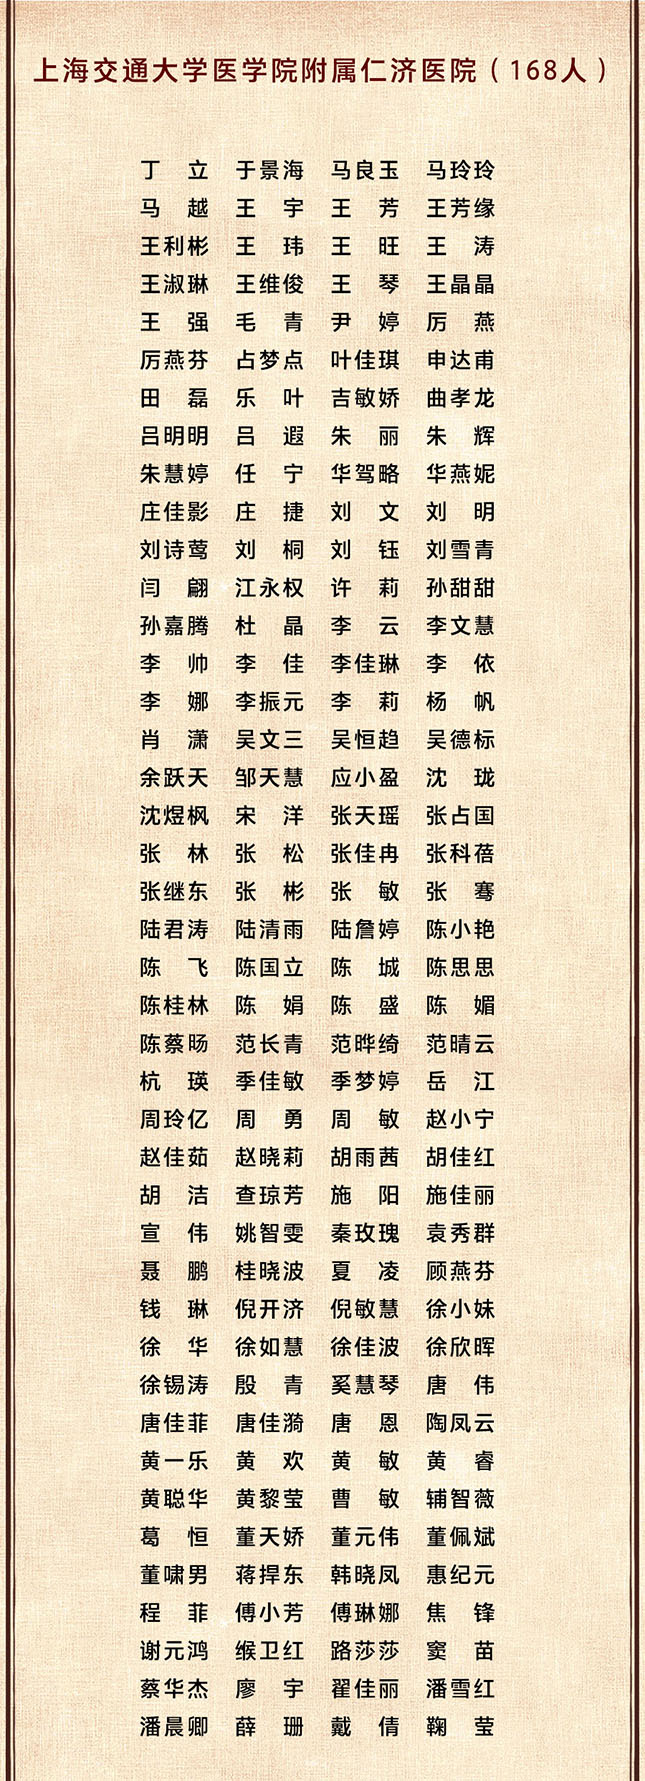 上海交通大学医学院附属仁济医院（168人）
丁立 于景海 马良玉 马玲玲
马越 王宇 王芳 王芳缘
王利彬 王玮 王旺 王涛
王淑琳 王维俊 王琴 王晶晶
王强 毛青 尹婷 厉燕
厉燕芬 占梦点 叶佳琪 申达甫
田磊 乐叶 吉敏娇 曲孝龙
吕明明 吕遐 朱丽 朱辉
朱慧婷 任宁 华驾略 华燕妮
庄佳影 庄捷 刘文 刘明
刘诗莺 刘桐 刘钰 刘雪青
闫翩 江永权 许莉 孙甜甜
孙嘉腾 杜晶 李云 李文慧
李帅 李佳 李佳琳 李依
李娜 李振元 李莉 杨帆
肖潇 吴文三 吴恒趋 吴德标
余跃天 邹天慧 应小盈 沈珑
沈煜枫 宋洋 张天瑶 张占国
张林 张松 张佳冉 张科蓓
张继东 张彬 张敏 张骞
陆君涛 陆清雨 陆詹婷 陈小艳
陈飞 陈国立 陈城 陈思思
陈桂林 陈娟 陈盛 陈媚
陈蔡旸 范长青 范晔绮 范晴云
杭瑛 季佳敏 季梦婷 岳江
周玲亿 周勇 周敏 赵小宁
赵佳茹 赵晓莉 胡雨茜 胡佳红
胡洁 查琼芳 施阳 施佳丽
宣伟 姚智雯 秦玫瑰 袁秀群
聂鹏 桂晓波 夏凌 顾燕芬
钱琳 倪开济 倪敏慧 徐小妹
徐华 徐如慧 徐佳波 徐欣晖
徐锡涛 殷青 奚慧琴 唐伟
唐佳菲 唐佳漪 唐恩 陶凤云
黄一乐 黄欢 黄敏 黄睿
黄聪华 黄黎莹 曹敏 辅智薇
葛恒 董天娇 董元伟 董佩斌
董啸男 蒋捍东 韩晓凤 惠纪元
程菲 傅小芳 傅琳娜 焦锋
谢元鸿 缑卫红 路莎莎 窦苗
蔡华杰 廖宇 翟佳丽 潘雪红
潘晨卿 薛珊 戴倩 鞠莹